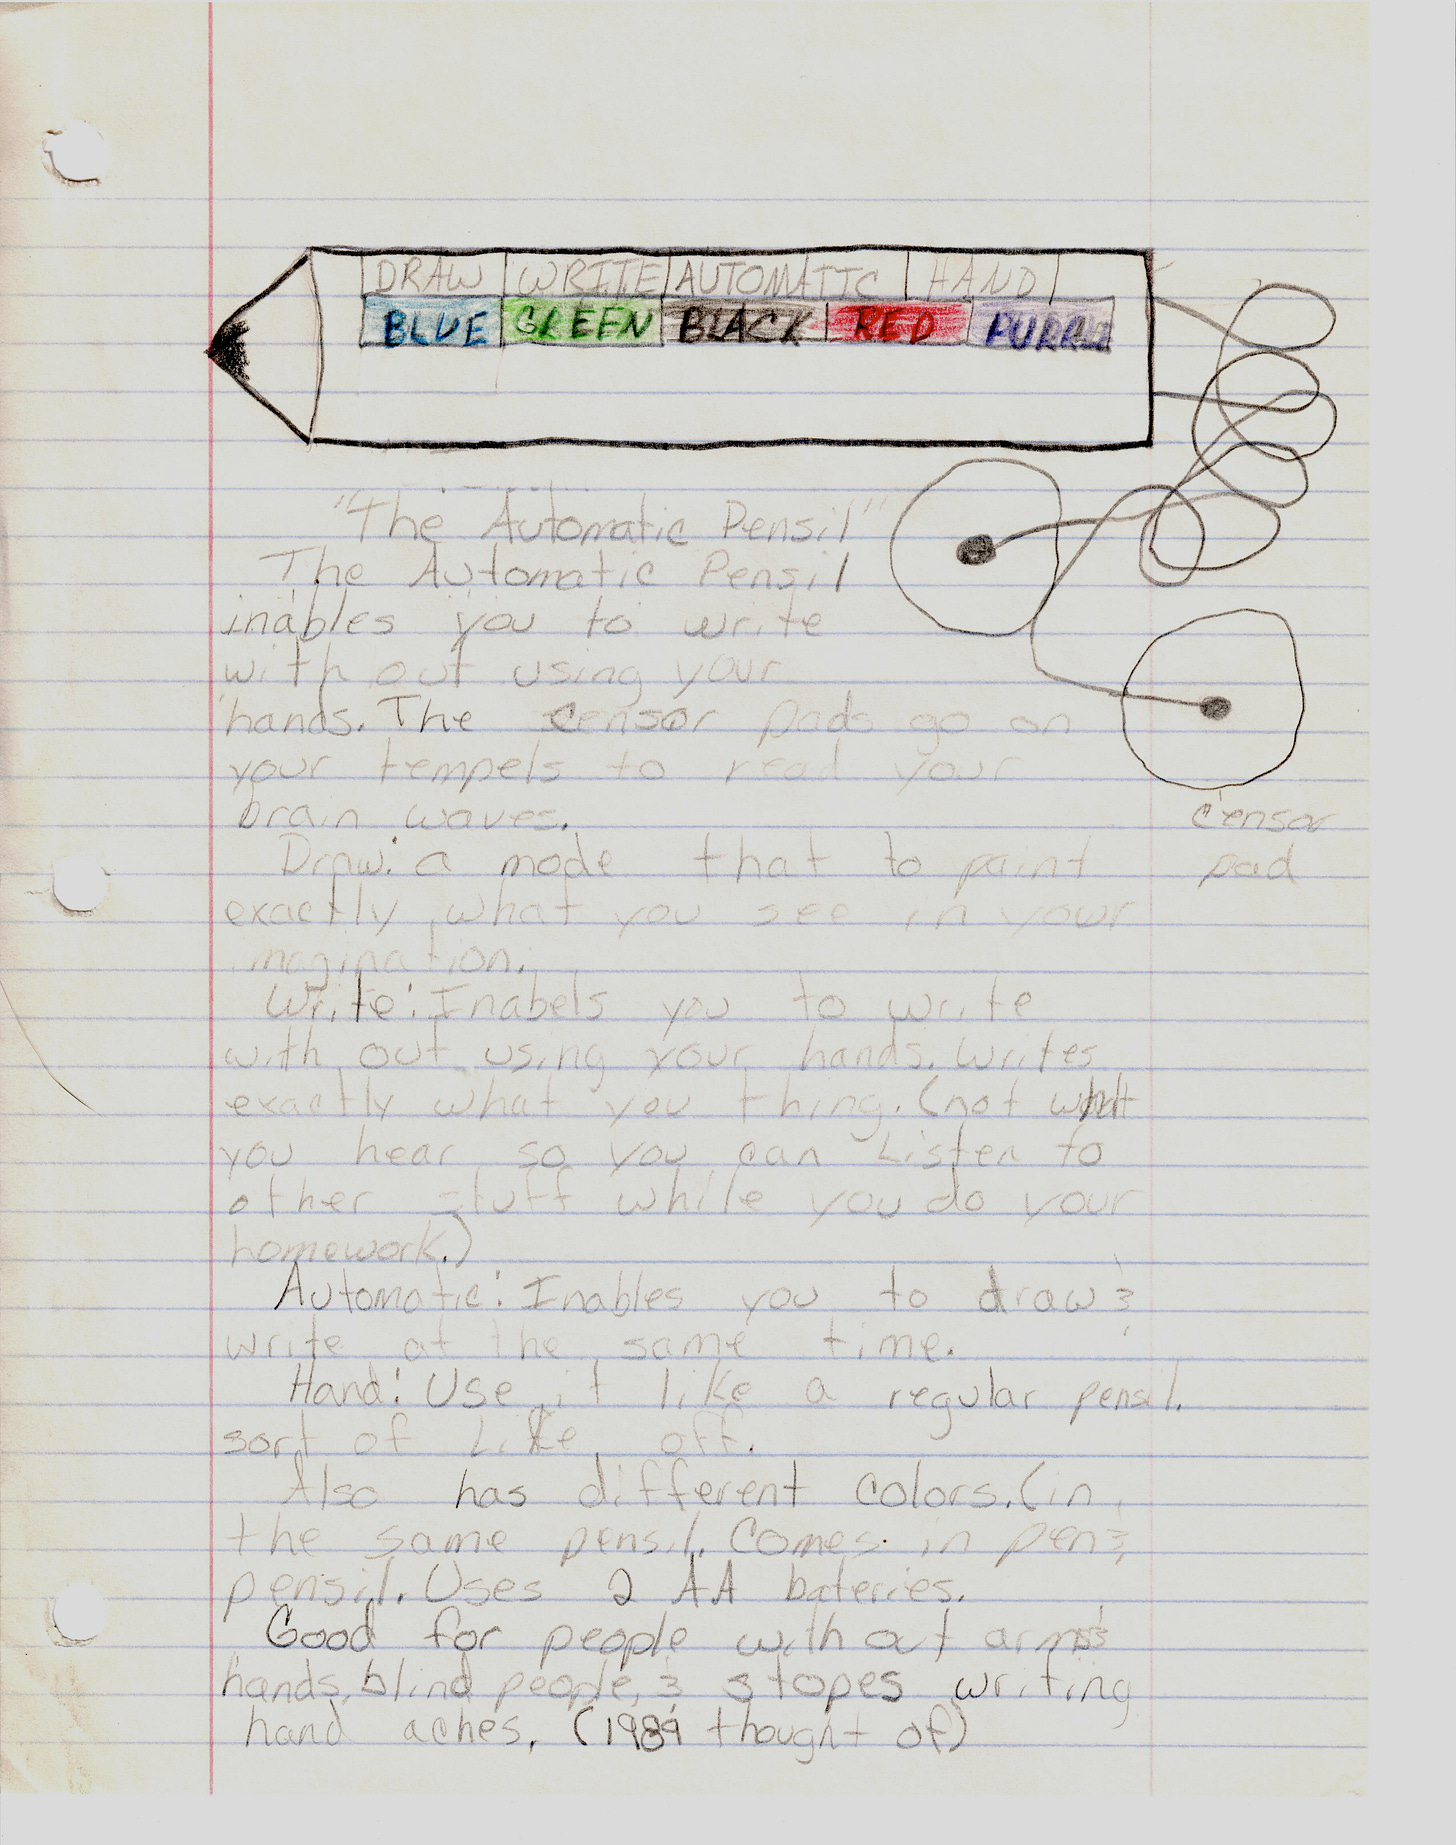 DRAW WRITE AUTOMATIC HAND
BLUE GREEN BLACK RED PURPLE
"The Automatic Pensil"
The Automatic Pensil
inables you to write
with out using your
hands. The censor pads go on
your tempels to read your
brain waves.
censor
pad
Draw: a mode that to paint
exactly what you see in your
imagination.
Write: Inabels you to write
with out using your hands. Writes
exactly what you thing. (not what
you hear so you can Listen to
other stuff while you do your
homework.)
Automatic: Inables you to draw &
write at the same time.
Hand: Use it like a regular pensil.
sort of Like off.
Also has different colors. (in
the same pensil. Comes in pen &
pensil. Uses 2 AA bateries.
Good for people without arms &
hands, blind people, & stopes writing
hand aches. (1989 thought of)